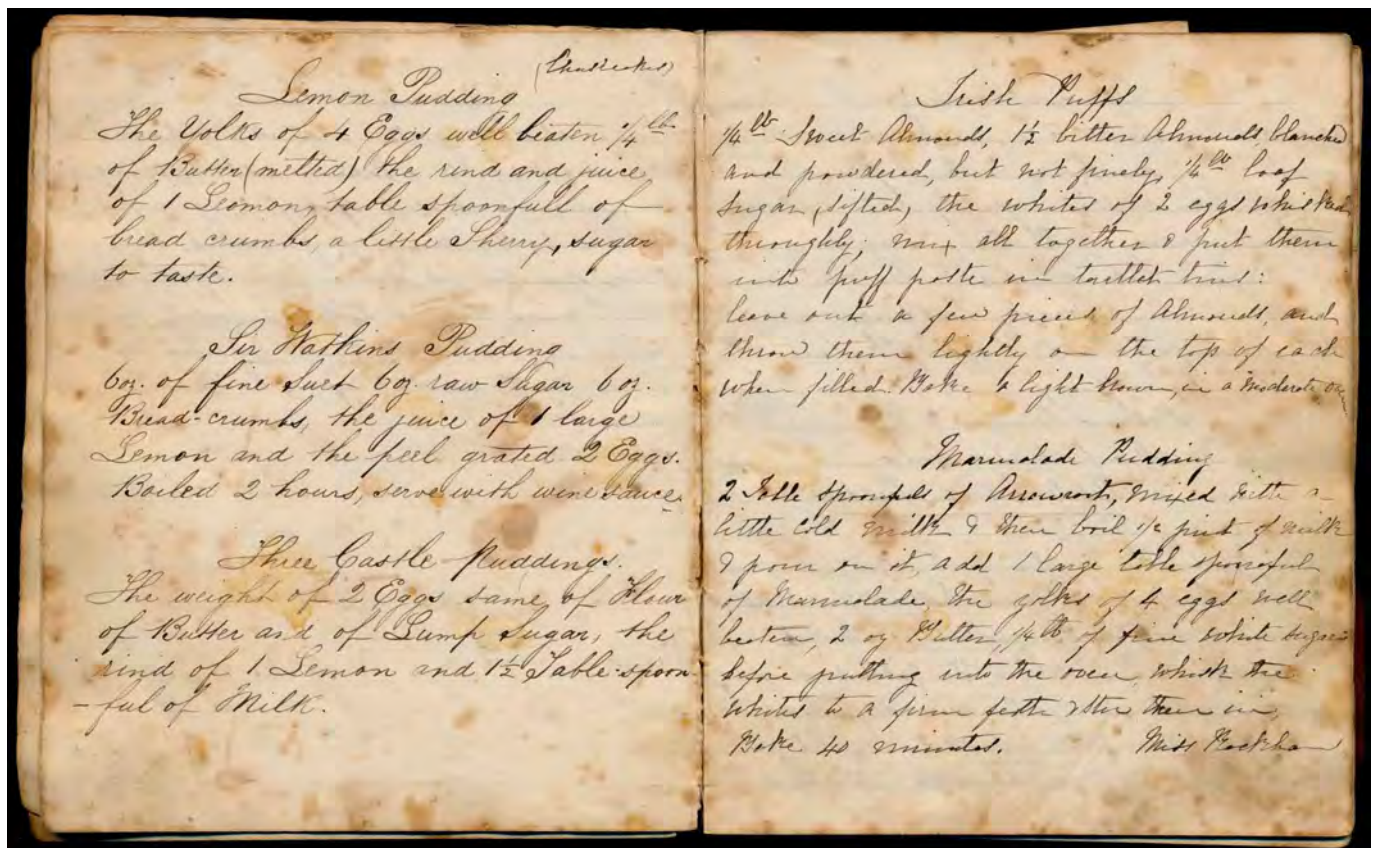 Lemon Pudding
The Yolks of 4 Eggs well beaten 1/4 lb
of Butter (melted) the rind and juice
of 1 Leomon, table spoonfull of
bread crumbs, a little Sherry, sugar
to taste.
Sir Watkins Pudding
6 oz. of fine Suet 6 oz. raw Sugar 6 oz.
Bread-crumbs, the juice of 1 large
Lemon and the peel grated 2 Eggs.
Boiled 2 hours, serve with wine sauce.
Three Castle Puddings.
The weight of 2 Eggs same of Flour
of Butter and of Lump Sugar, the
rind of 1 Lemon and 1½ Table-spoon
-ful of Milk.
Irish Puffs
1/4 lb Sweet Almonds, 1½ bitter Almonds, blanched
and powdered, but not finely, 1/4 lb loaf
sugar, sifted, the whites of 2 eggs whisked
throughly; mix all together & put them
into puff paste in tartlet tins:
leave out a few pieces of Almonds, and
throw them lightly on the top of each
when filled. Bake a light brown, in a moderate oven
Marmalade Pudding
2 Table spoonfuls of Arrowroot, mixed with a
little cold milk & then boil 1/2 pint of milk
& pour on it, add 1 large table spoonful
of Marmalade, the yolks of 4 eggs well
beaten, 2 oz Butter, 1/4 lb of fine white sugar
before putting into the oven, whisk the
whites to a firm froth & stir them in,
Bake 40 minutes. Miss